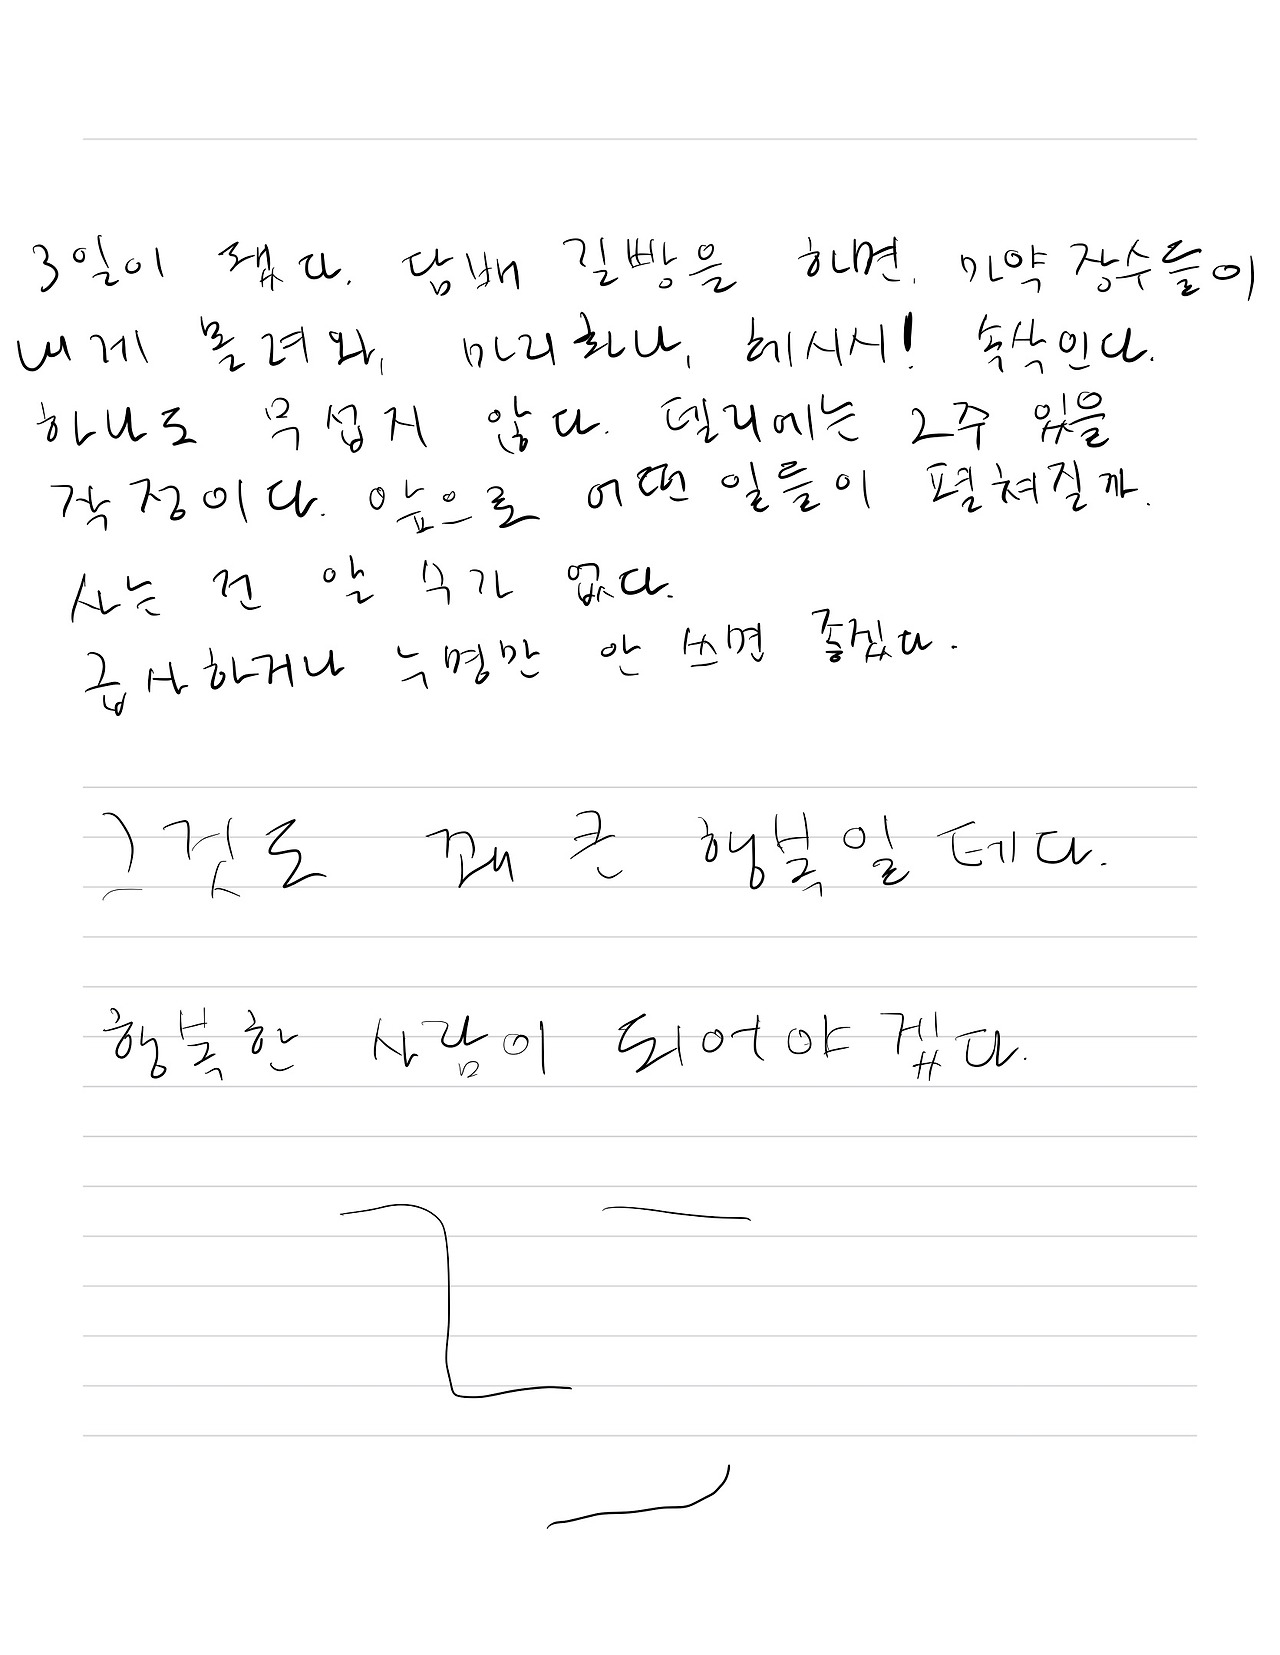 3일이 됐다. 담배 길빵을 하면, 마약 장수들이
내게 몰려와, 마리화나, 헤시시! 속삭인다.
하나도 무섭지 않다. 델리에는 2주 있을
작정이다. 앞으로 어떤 일들이 펼쳐질까.
사는 건 알 수가 없다.
급사하거나 누명만 안 쓰면 좋겠다.
그것도 꽤 큰 행복일 테다.
행복한 사람이 되어야겠다.